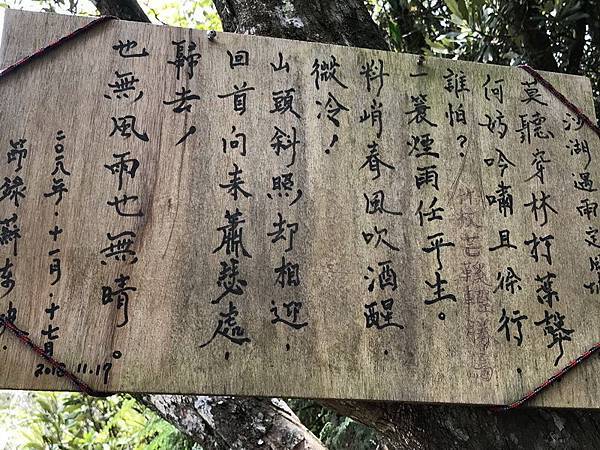 沙湖遇雨定風坡
莫聽穿林打葉聲
何妨吟嘯且徐行，
誰怕？竹杖芒鞋輕勝馬
一簑煙雨任平生。
料峭春風吹酒醒，
微冷！
山頭斜照却相迎，
回首向来蕭瑟處，
歸去！
也無風雨也無晴。
二〇一八年·十一月·十七日
2018 11.17
節錄蘇東坡.